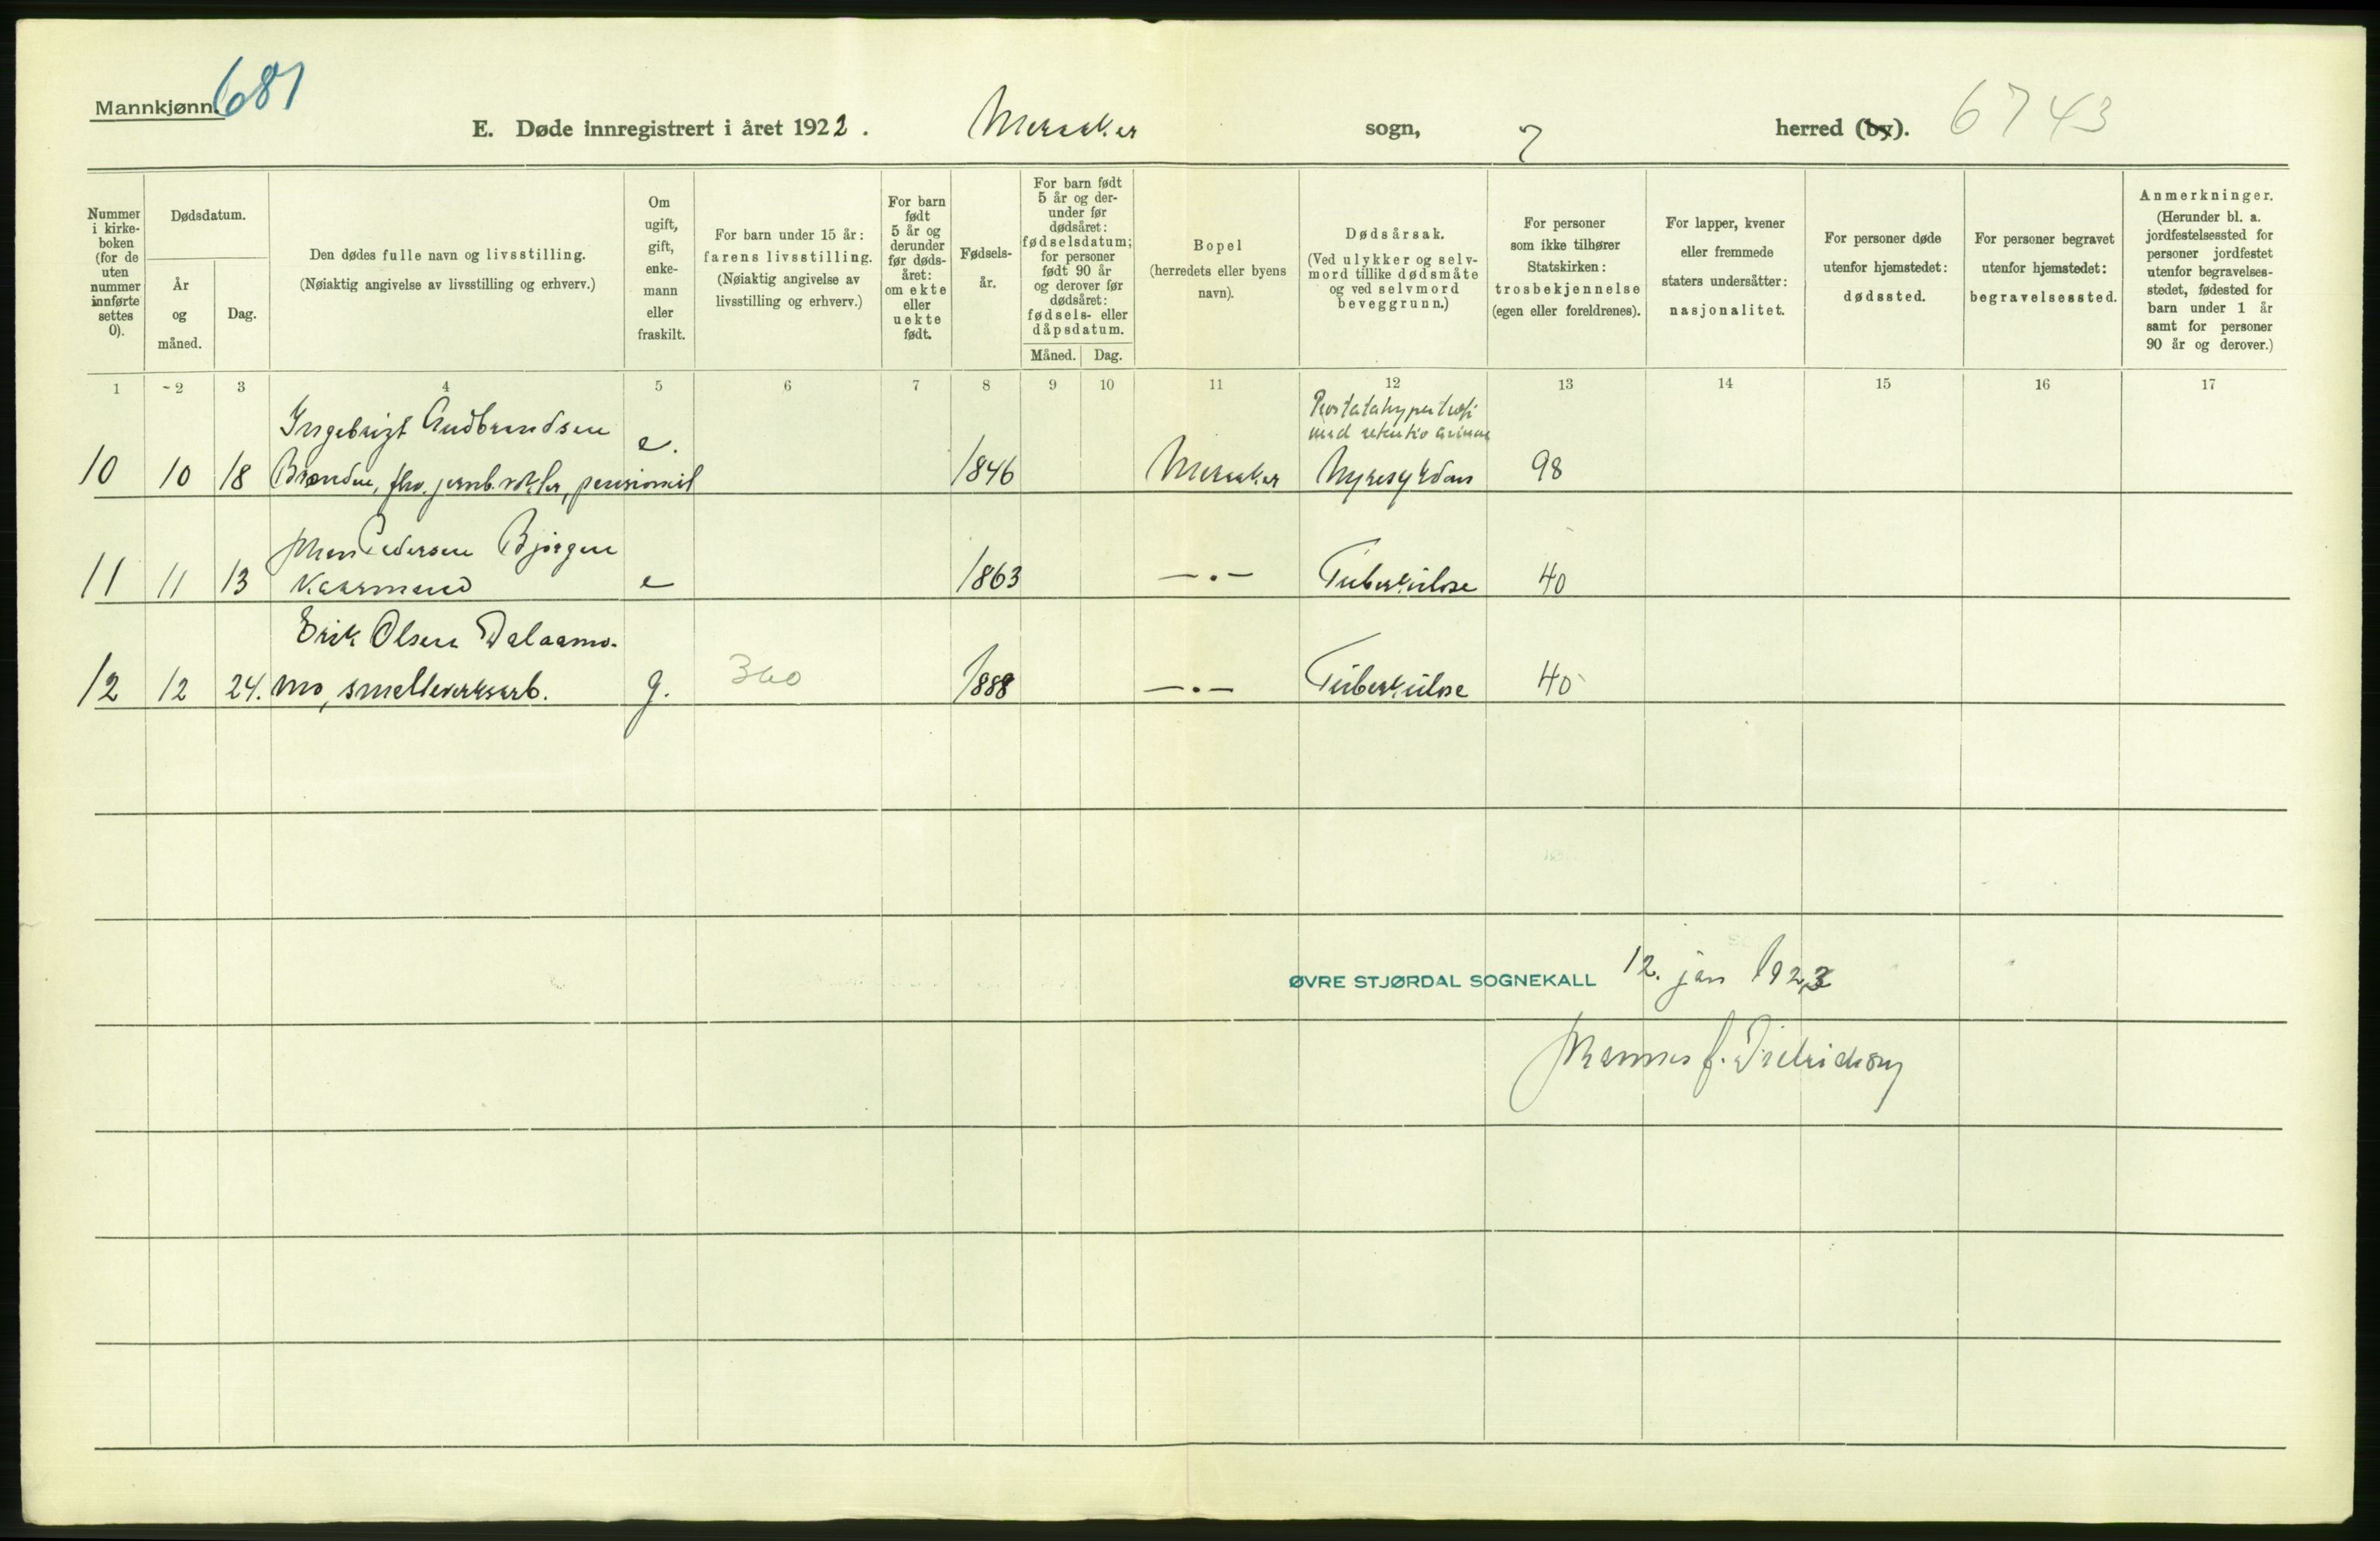 Mannkjønn. 681
E. Døde innregistrert i året 1922. Meraker sogn, herred (by). 6743
Nummer i kirke-boken (for de uten nummer innførte settes 0).
Dødsdatum.
År og måned.
Dag.
Den dødes fulle navn og livsstilling.
(Nøiaktig angivelse av livsstilling og erhverv.)
Om ugift, gift, enke-mann eller fraskilt.
For barn under 15 år: farens livsstilling.
(Nøiaktig angivelse av livsstilling og erhverv.)
For barn født 5 år og derunder før døds-året: om ekte eller uekte født.
Fødsels-år.
For barn født 5 år og der-under før dødsåret: fødselsdatum; for personer født 90 år og derover før dødsåret: fødsels- eller dåpsdatum.
Måned. Dag.
Bopel (herredets eller byens navn).
Dødsårsak.
(Ved ulykker og selv-mord tillike dødsmåte og ved selvmord beveggrunn.)
For personer som ikke tilhører Statskirken: trosbekjennelse (egen eller foreldrenes).
For lapper, kvener eller fremmede staters undersåtter: nasjonalitet.
For personer døde utenfor hjemstedet: dødssted.
For personer begravet utenfor hjemstedet: begravelsessted.
Anmerkninger.
(Herunder bl. a. jordfestelsessted for personer jordfestet utenfor begravelses-stedet, fødested for barn under 1 år samt for personer 90 år og derover.)
1 2 3 4 5 6 7 8 9 10 11 12 13 14 15 16 17
Ingebrigt Gudbrandsen e. Prostatahypertrofi
med retentio urinae
10 10 18 Brenden, fhv. jernb. vokter, pensionist 1846 Meraker Nyresykdom 98
Pedersen Bjørgen
11 11 13 Kaarmand e 1863 —.— Tuberkulose 40
Erik Olsen Dalaamo.
12 12 24. mo, smelteverksarb. g. 360 1888 —.— Tuberkulose 40
ØVRE STJØRDAL SOGNEKALL 12. jan 1923